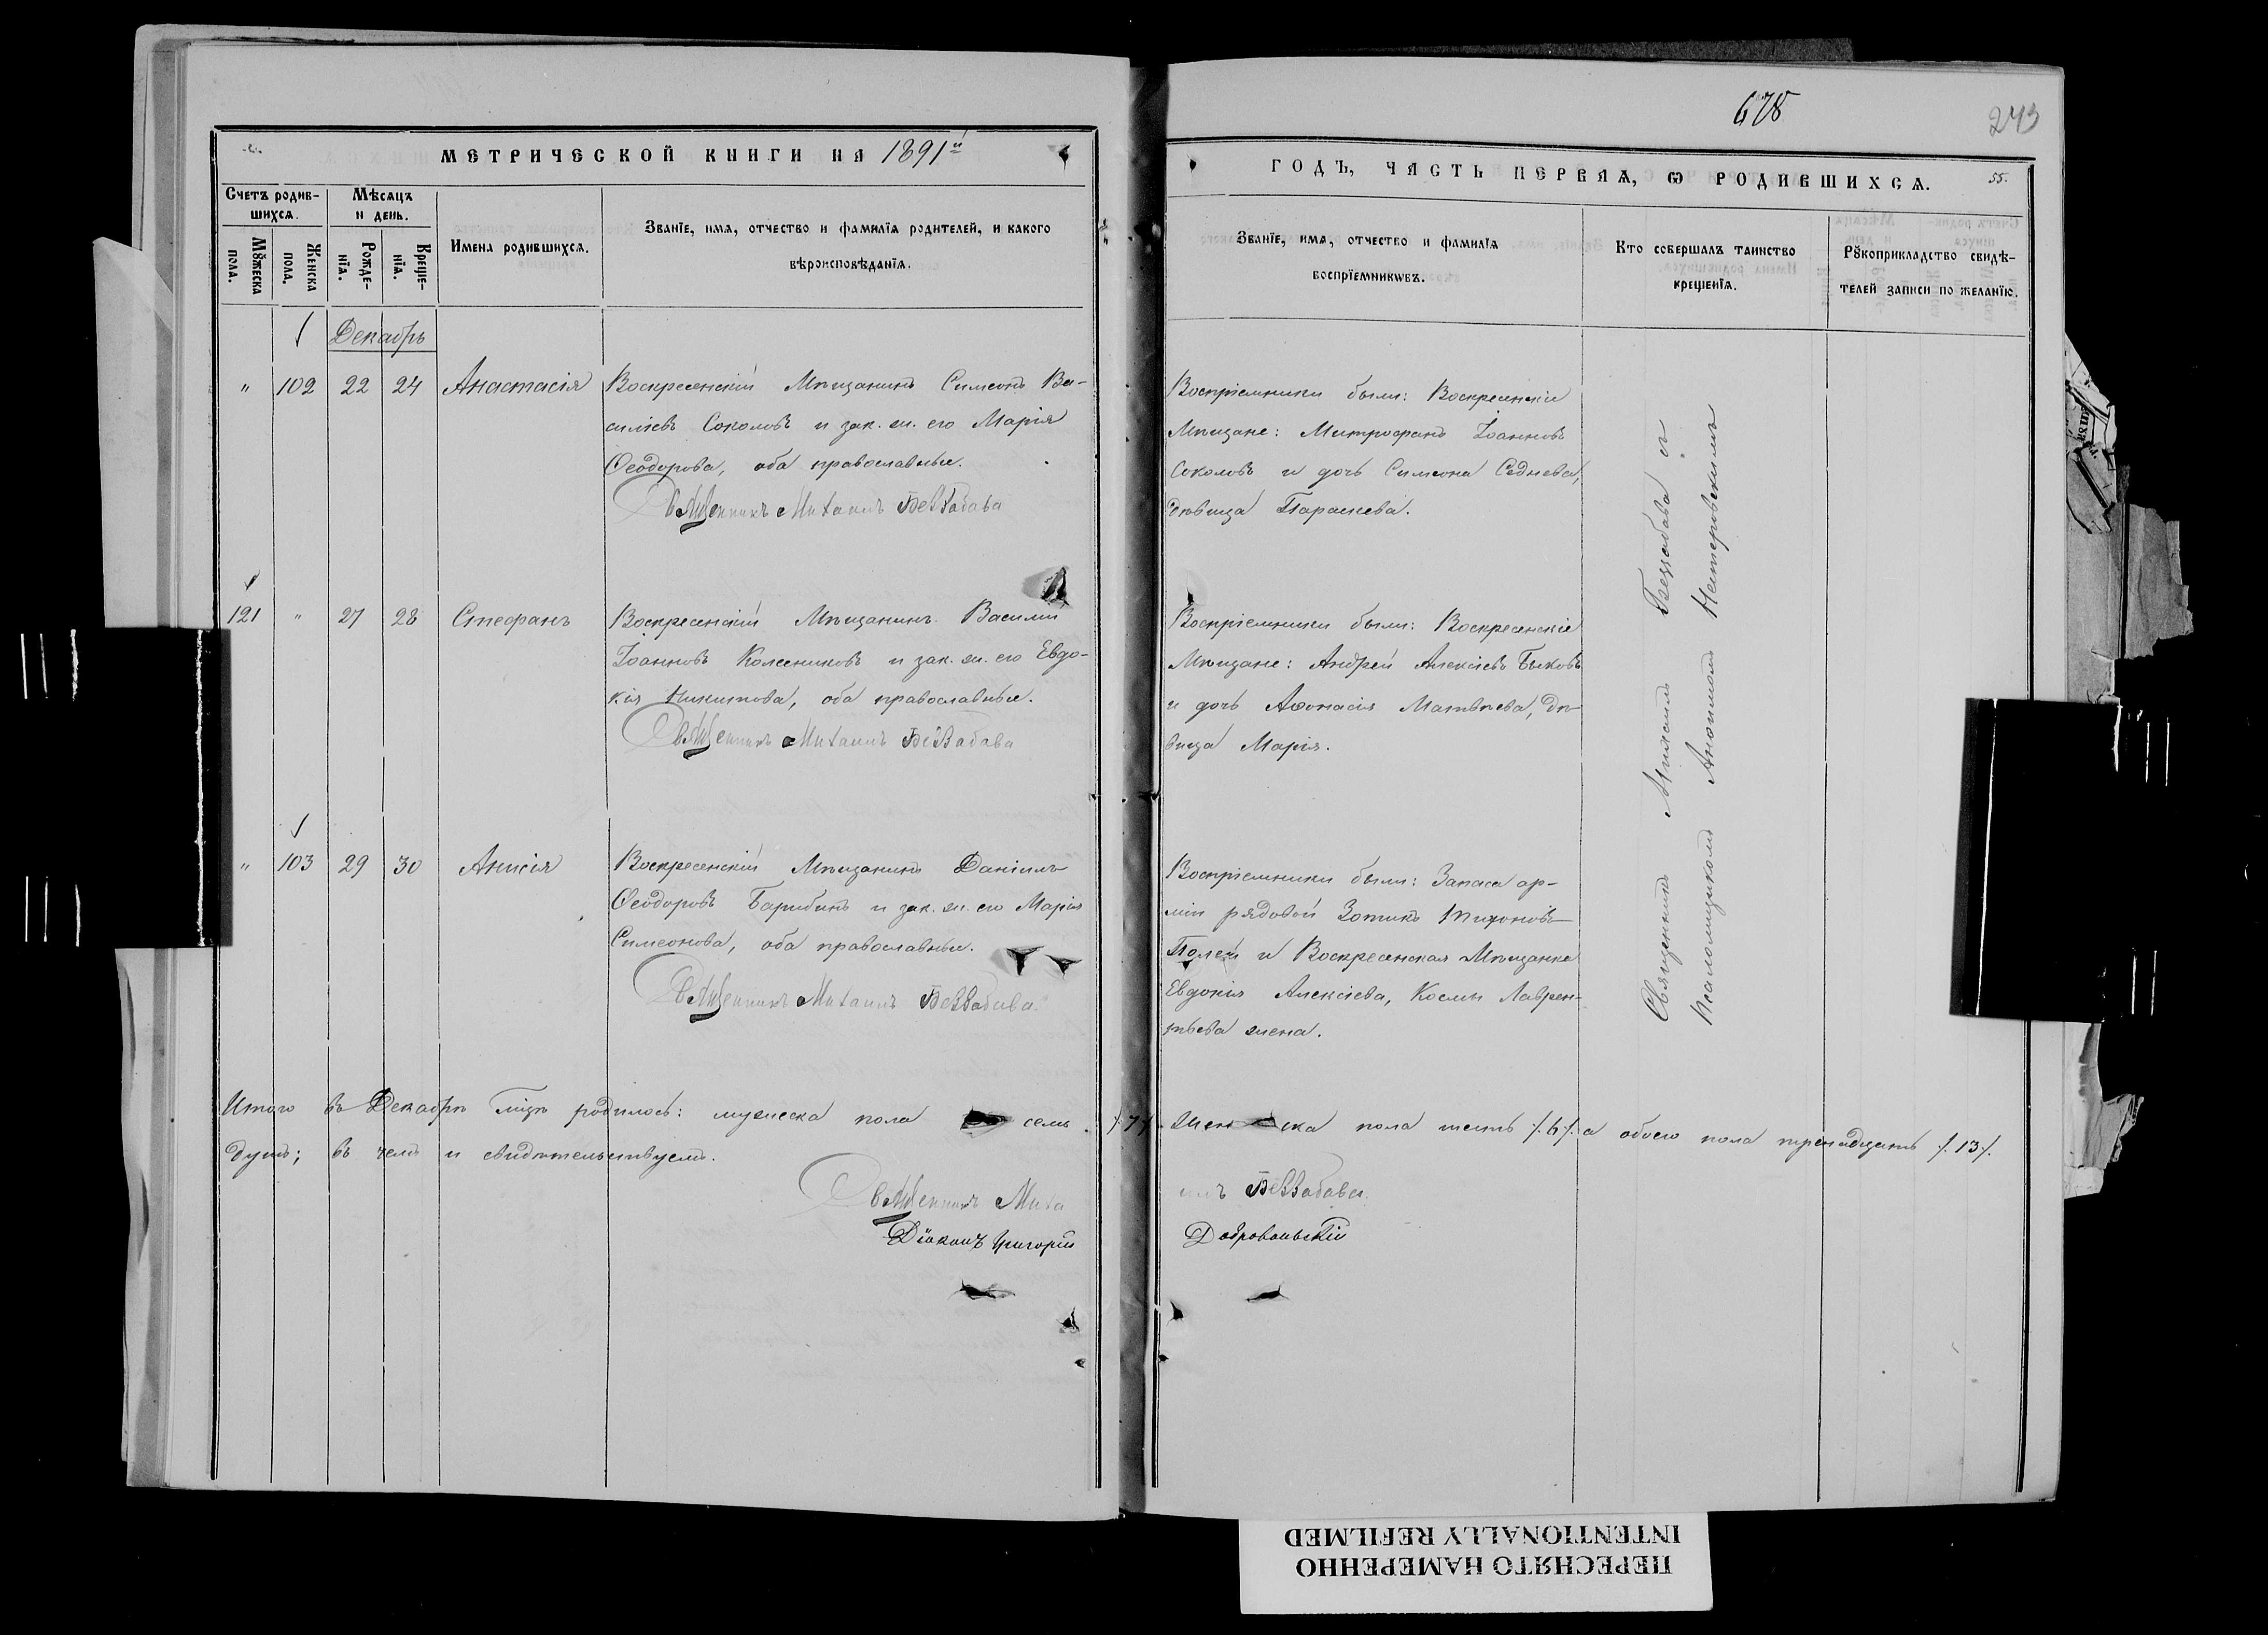 678
243
МЕТРИЧЕСКОЙ КНИГИ НА 1891й
ГОДЪ, ЧАСТЬ ПЕРВАЯ, Ѡ РОДИВШИХСѦ.
55.
Счетъ родив-
шихсѧ.
Мѣсѧцъ
и день.
Мꙋжеска
пола.
Женска
пола.
Рожде-
нїѧ.
Креще-
нїѧ.
Имена родившихсѧ.
Званїе, имѧ, отчество и фамилїѧ родителей, и какого
вѣроисповѣданїѧ.
Званїе, имѧ, отчество и фамилїѧ
воспрїемникѡвъ.
Кто совершалъ таинство
крещенїѧ.
Рꙋкоприкладство свидѣ-
телей записи по желанїю.
Декабрь
" 102 22 24 Анастасія Воскресенскій Мѣщанинъ Симеонъ Ва-
силіевъ Соколовъ и зак. ж. его Марія
Ѳеодорова, оба православные.
Священникъ Михаилъ Беззабава
Воспріемники были: Воскресенскіе
Мѣщане: Митрофанъ Іоанновъ
Соколовъ и дочь Симеона Седнева,
дѣвица Параскева.
121 " 27 28 Стефанъ Воскресенскій Мѣщанинъ Василій
Іоанновъ Колесниковъ и зак. ж. его Евдо-
кія Никитова, оба православные.
Священникъ Михаилъ Беззабава
Воспріемники были: Воскресенскіе
Мѣщане: Андрей Алексіевъ Быковъ
и дочь Афонасія Матвѣева, дѣ-
вица Марія.
" 103 29 30 Анисія Воскресенскій Мѣщанинъ Даніилъ
Ѳеодоровъ Барибинъ и зак. ж. его Марія
Симеонова, оба православные.
Священникъ Михаилъ Беззабава
Воспріемники были: Запаса ар-
міи рядовой Зотикъ Тихоновъ
Полей и Воскресенская Мѣщанка
Евдокія Алексіева, Космы Лаврен-
тьева жена.
Священникъ Михаилъ Беззабава съ
Псаломщикомъ Нестеровскимъ
Итого въ Декабрѣ мцѣ родилось: мужеска пола семь /.7/. женска пола шесть /.6/. а обоего пола тринадцать /.13/.
душъ; въ чемъ и свидѣтельствуемъ.
Священникъ Михаилъ Беззабава
Діаконъ Григорій Добровольскій
ПЕРЕСНЯТО НАМЕРЕННО
INTENTIONALLY REFILMED